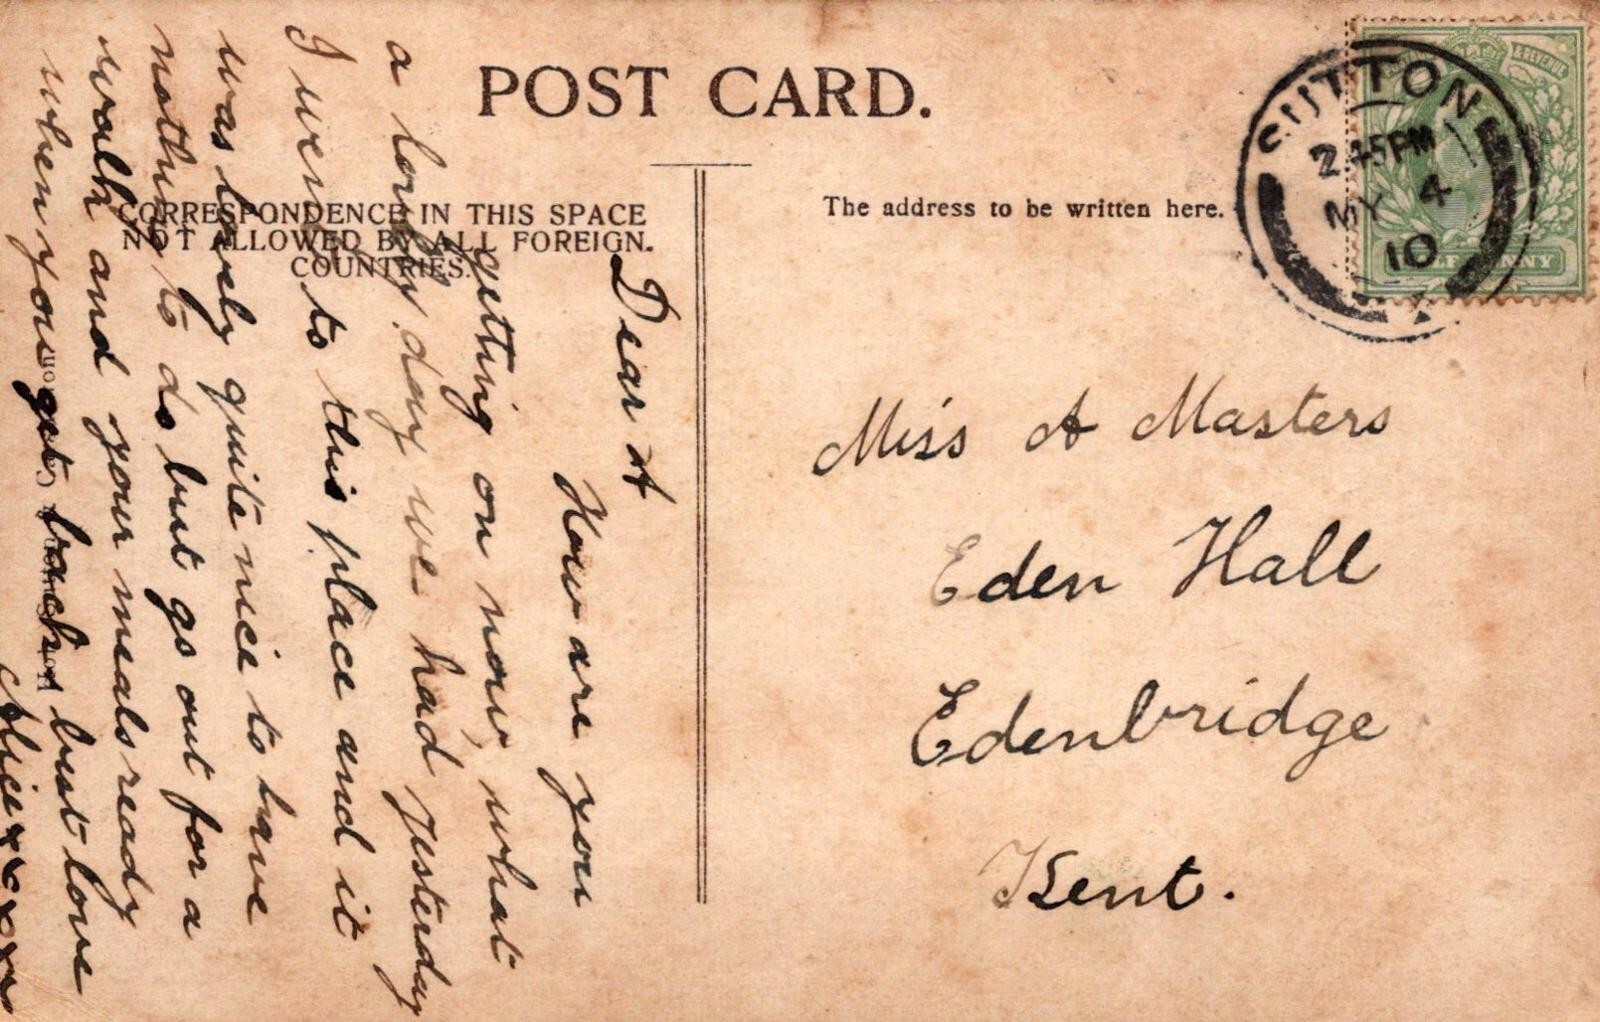 POST CARD.
CORRESPONDENCE IN THIS SPACE
NOT ALLOWED BY ALL FOREIGN.
COUNTRIES.
The address to be written here.
SUTTON
2 45PM
MY 4
10
& REVENUE
HALFPENNY
Dear A
How are you
getting on now, what
a lovely day we had yesterday
I went to this place and it
was lovely quite nice to have
nothing to do but go out for a
walk and your meals ready
when you get back best love
Alice x x x x x
Miss A Masters
Eden Hall
Edenbridge
Kent.